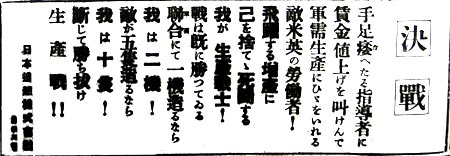 決戰
手足痿へたる指導者に
賃金値上げを叫けんで
軍需生産にひゞをいれる
敵米英の勞働者!
飛躍する増産に
己を捨てゝ死鬪する
我が生産戰士!
戰は既に勝つてゐる
聯合にて一機造るなら
我は二機!
敵が五隻造るなら
我は十隻!
斷じて勝ち拔け
生産戰!!
日本 株式會社